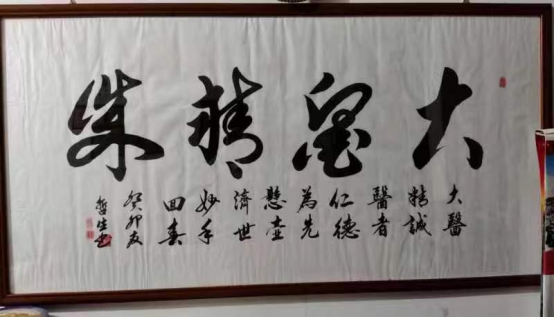 大醫精誠
大醫
精誠
醫者
仁德
為先
懸壺
濟世
妙手
回春
癸卯夏
哲生书